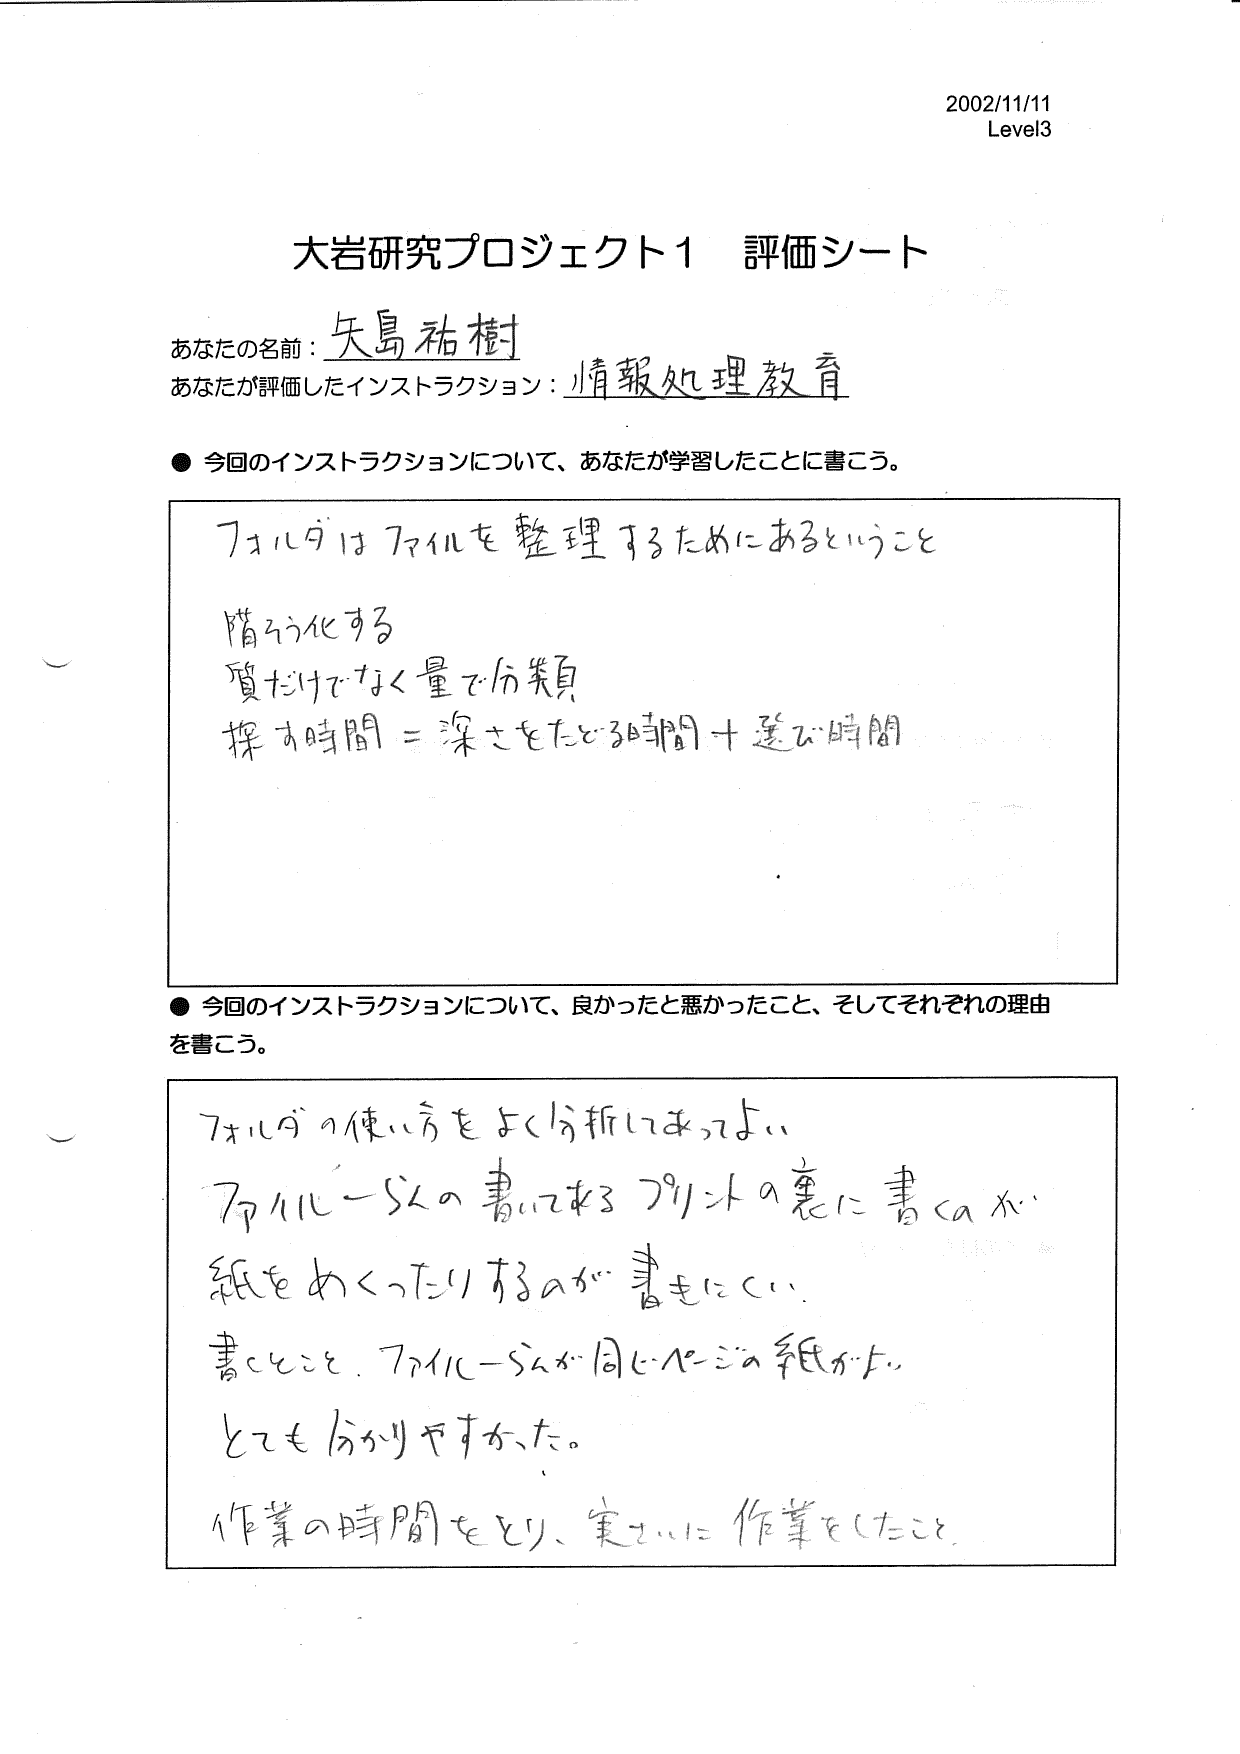 2002/11/11
Level3
大岩研究プロジェクト1　評価シート
あなたの名前：矢島祐樹
あなたが評価したインストラクション：情報処理教育
● 今回のインストラクションについて、あなたが学習したことに書こう。
フォルダはファイルを整理するためにあるということ
階そう化する
質だけでなく量で分類
探す時間 = 深さをたどる時間 + 選び時間
● 今回のインストラクションについて、良かったと悪かったこと、そしてそれぞれの理由
を書こう。
フォルダの使い方をよく分析してあってよい
ファイル一らんの書いてあるプリントの裏に書くのが
紙をめくったりするのが書きにくい.
書くとこと、ファイル一らんが同じページの紙がよい
とても分かりやすかった。
作業の時間をとり、実さいに作業をしたこと.